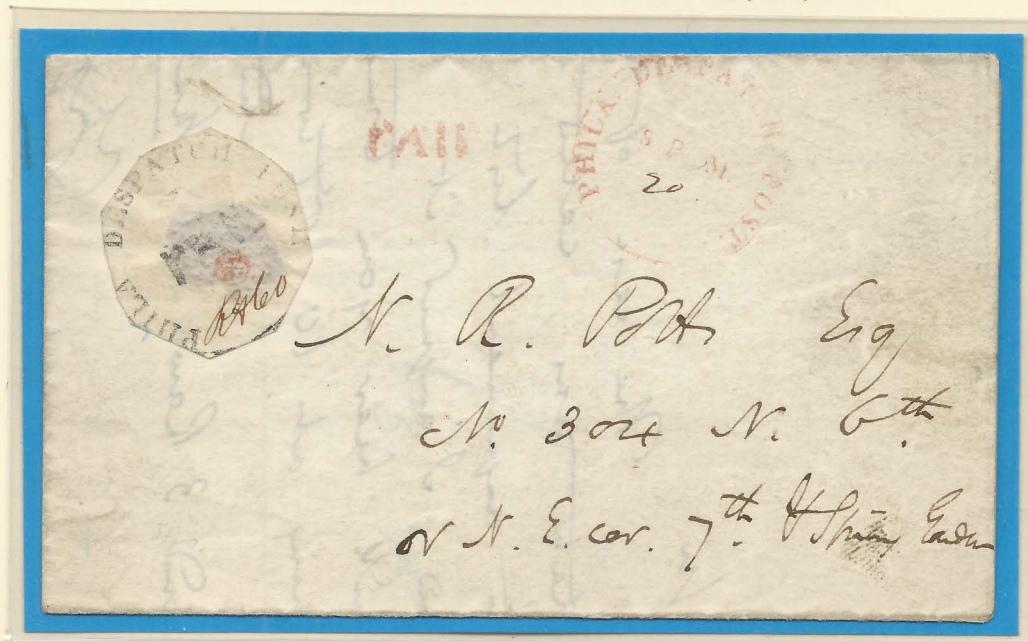 PHILA DESPATCH POST
8 P.M.
20
PAID
PHILA DESPATCH POST
N. R. Potts Esq
No. 304 N. 6th.
or N. E. cor. 7th. & Spring Garden